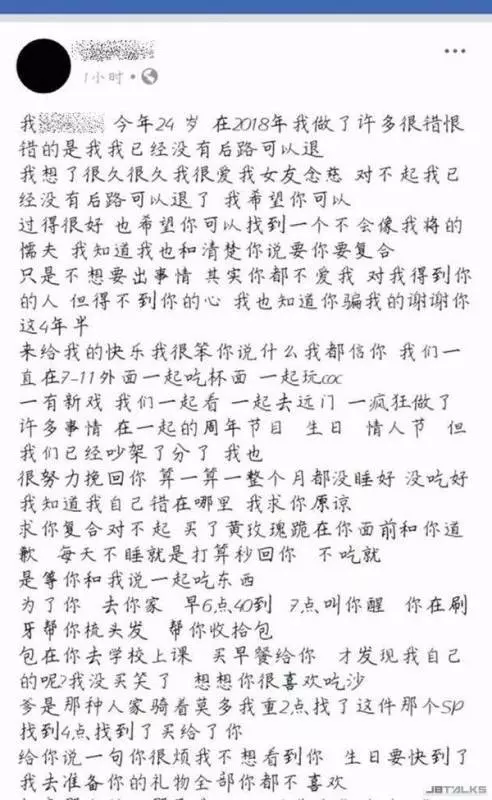 1小时
我 今年24岁 在2018年我做了许多很错恨
错的是我我已经没有后路可以退
我想了很久很久我很爱我女友念慈 对不起我已
经没有后路可以退了 我希望你可以
过得很好 也希望你可以找到一个不会像我将的
懦夫 我知道我也和清楚你说要你要复合
只是不想要出事情 其实你都不爱我 对我得到你
的人 但得不到你的心 我也知道你骗我的谢谢你
这4年半
来给我的快乐我很笨你说什么我都信你 我们一
直在7-11外面一起吃杯面 一起玩coc
一有新戏 我们一起看 一起去远门 一疯狂做了
许多事情 在一起的周年节目 生日 情人节 但
我们已经吵架了分了 我也
很努力挽回你 算一算一整个月都没睡好 没吃好
我知道我自己错在哪里 我求你原谅
求你复合对不起 买了黄玫瑰跪在你面前和你道
歉 每天不睡就是打算秒回你 不吃就
是等你和我说一起吃东西
为了你 去你家 早6点40到 7点叫你醒 你在刷
牙帮你梳头发 帮你收拾包
包在你去学校上课 买早餐给你 才发现我自己
的呢?我没买笑了 想想你很喜欢吃沙
爹是那种人家骑着莫多我重2点找了这件那个SP
找到4点找到了买给了你
给你说一句你很烦我不想看到你 生日要快到了
我去准备你的礼物全部你都不喜欢
JBTALKS